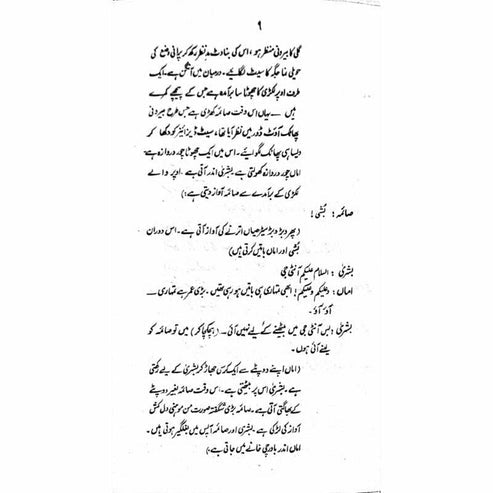 ۹
گلی کا بیرونی منظر ہو، اس کی بناوٹ مدِ نظر رکھ کر پرانی وضع کی
حویلی نما جگہ کا سیٹ لگائیے۔ درمیان میں آنگن ہے۔ ایک
طرف اوپر لکڑی کا چھوٹا سا برآمدہ ہے جس کے پیچھے کمرے
ہیں۔ یہاں اس وقت صائمہ کھڑی ہے جس طرح بیرونی
پھاٹک آؤٹ ڈور میں نظر آیا تھا، سیٹ ڈیزائنر کو دکھا کر
ویسا ہی پھاٹک لگوائیے۔ اس میں ایک چھوٹا چور دروازہ ہے
اماں چور دروازہ کھولتی ہے بشریٰ اندر آتی ہے۔ اوپر والے
لکڑی کے برآمدے سے صائمہ آواز دیتی ہے:)
صائمہ: بُشی!
(پھر دڑ دڑ سیڑھیاں اترنے کی آواز آتی ہے۔ اس دوران
بُشی اور اماں باتیں کرتی ہیں)
بشریٰ: السلام علیکم آنٹی جی
اماں: وعلیکم وعلیکم! ابھی تمہاری ہی باتیں ہو رہی تھیں۔ بڑی عمر ہے تمہاری ــ
آؤ آؤ۔
بشریٰ: بس آنٹی جی میں بیٹھنے کے لیے نہیں آئی۔ (ہچکچا کر) میں تو صائمہ کو
لینے آئی ہوں۔
(اماں اپنے دوپٹے سے ایک کرسی جھاڑ کر بشریٰ کے لیے رکھتی
ہے۔ بشریٰ اس پر بیٹھتی ہے۔ اس وقت صائمہ بغیر دوپٹے
کے بھاگتی آتی ہے۔ صائمہ بڑی شگفتہ صورت من موہنی دل کش
آواز کی لڑکی ہے۔ بشریٰ اور صائمہ آپس میں بغلگیر ہوتی ہیں۔
اماں اندر باورچی خانے میں جاتی ہے:)